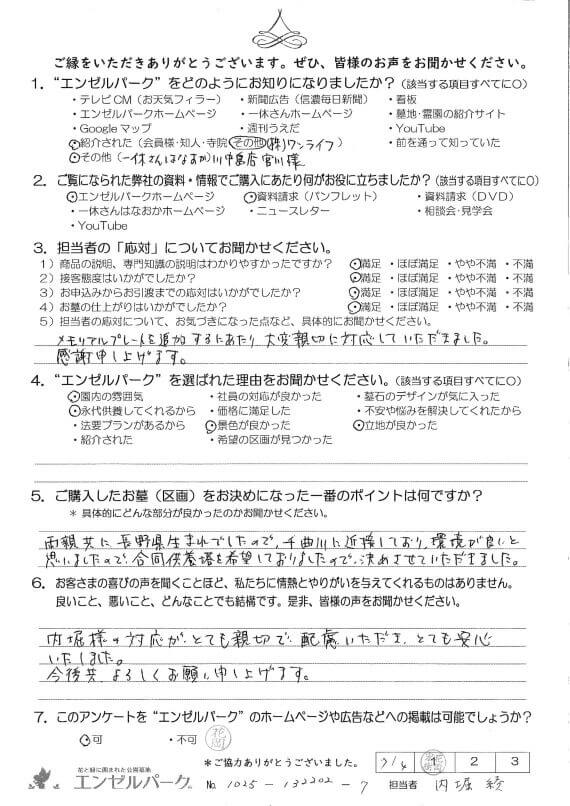 ご縁をいただきありがとうございます。ぜひ、皆様のお声をお聞かせください。
1. “エンゼルパーク”をどのようにお知りになりましたか?(該当する項目すべてに○)
・テレビCM(お天気フィラー) ・新聞広告(信濃毎日新聞) ・看板
・エンゼルパークホームページ ・一休さんホームページ ・墓地・霊園の紹介サイト
・Googleマップ ・週刊うえだ ・YouTube
・紹介された(会員様・知人・寺院 その他 (株)ワンライフ) ・前を通って知っていた
・その他(一休さんはなおか川中島店 宮川様
2. ご覧になられた弊社の資料・情報でご購入にあたり何がお役に立ちましたか?(該当する項目すべてに○)
・エンゼルパークホームページ ・資料請求(パンフレット) ・資料請求(DVD)
・一休さんはなおかホームページ ・ニュースレター ・相談会・見学会
・YouTube
3. 担当者の「応対」についてお聞かせください。
1)商品の説明、専門知識の説明はわかりやすかったですか? ・満足 ・ほぼ満足 ・やや不満 ・不満
2)接客態度はいかがでしたか? ・満足 ・ほぼ満足 ・やや不満 ・不満
3)お申込みからお引渡までの応対はいかがでしたか? ・満足 ・ほぼ満足 ・やや不満 ・不満
4)お墓の仕上がりはいかがでしたか? ・満足 ・ほぼ満足 ・やや不満 ・不満
5)担当者の応対について、お気づきになった点など、具体的にお聞かせください。
メモリアルプレートを追加するにあたり大変親切に対応していただきました。
感謝申し上げます。
4. “エンゼルパーク”を選ばれた理由をお聞かせください。(該当する項目すべてに○)
・園内の雰囲気 ・社員の対応が良かった ・墓石のデザインが気に入った
・永代供養してくれるから ・価格に満足した ・不安や悩みを解決してくれたから
・法要プランがあるから ・景色が良かった ・立地が良かった
・紹介された ・希望の区画が見つかった
5. ご購入したお墓(区画)をお決めになった一番のポイントは何ですか?
* 具体的にどんな部分が良かったのかお聞かせください。
両親共に長野県生まれでしたので、千曲川に近接しており、環境が良いと
思いましたので、合同供養塔を希望しておりましたので、決めさせていただきました。
6. お客さまの喜びの声を聞くことほど、私たちに情熱とやりがいを与えてくれるものはありません。
良いこと、悪いこと、どんなことでも結構です。是非、皆様の声をお聞かせください。
内堀様の対応が、とても親切で、配慮いただき、とても安心
いたしました。
今後共、よろしくお願い申し上げます。
7. このアンケートを“エンゼルパーク”のホームページや広告などへの掲載は可能でしょうか?
・可 ・不可
*ご協力ありがとうございました。 7/4 1 2 3
花と緑に囲まれた公園墓地
エンゼルパーク No. 1025-132202-7 担当者 内堀 綾